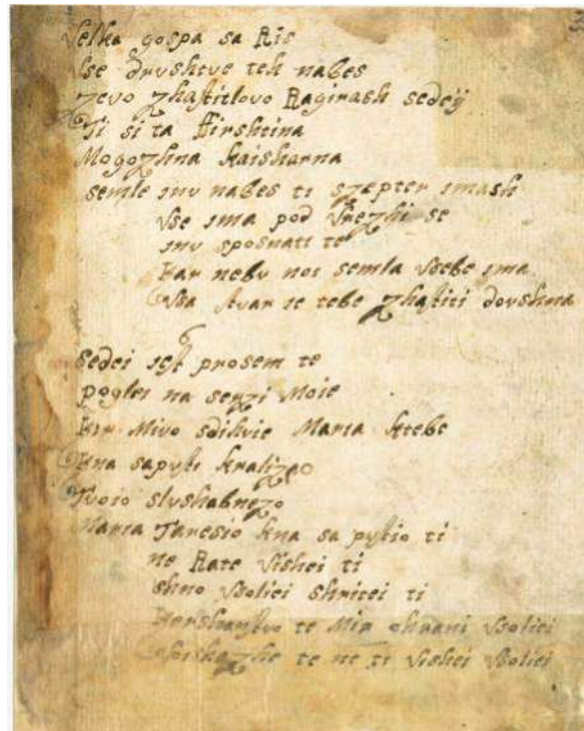 Velka gospa sa Ris
Vse drushtve teh nabes
zevo zhastitlovo Ragirash sedeij
Ti si ta ffirshtina
Mogozhna kaisharna
semle inu nabes ti szepter imash
Vse ima pod Vrezhi se
inu sposnati te
kar nebu noi semla Vsebe ima
Vsa stvar se tebe zhastiti dovshna
sedei jest prosem te
poglei na serzi Moie
ker Milo sdihvie Maria ktebe
kna
Tvoio slushabnezo
Maria Taresio kna ti
ne Rate Vishei ti
shno Vsoliei shritei ti
te Mir ohrani Vsoliei
te ne ti Vishei Vsoliei